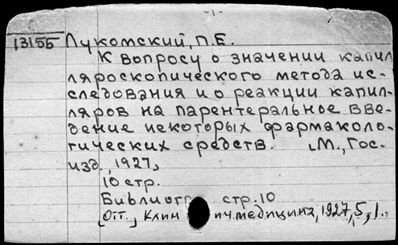 13155 Лукомский, П.Е.
К вопросу о значении капил
ляроскопического метода ис-
следования и о реакции капил-
ляров на парентеральное вве-
дение некоторых фармаколо-
гических средств. М., Гос-
изд., 1927,
10 стр.
Библиогр. стр. 10
[Отт., Клин ич. медицина, 1927, 5, 1.